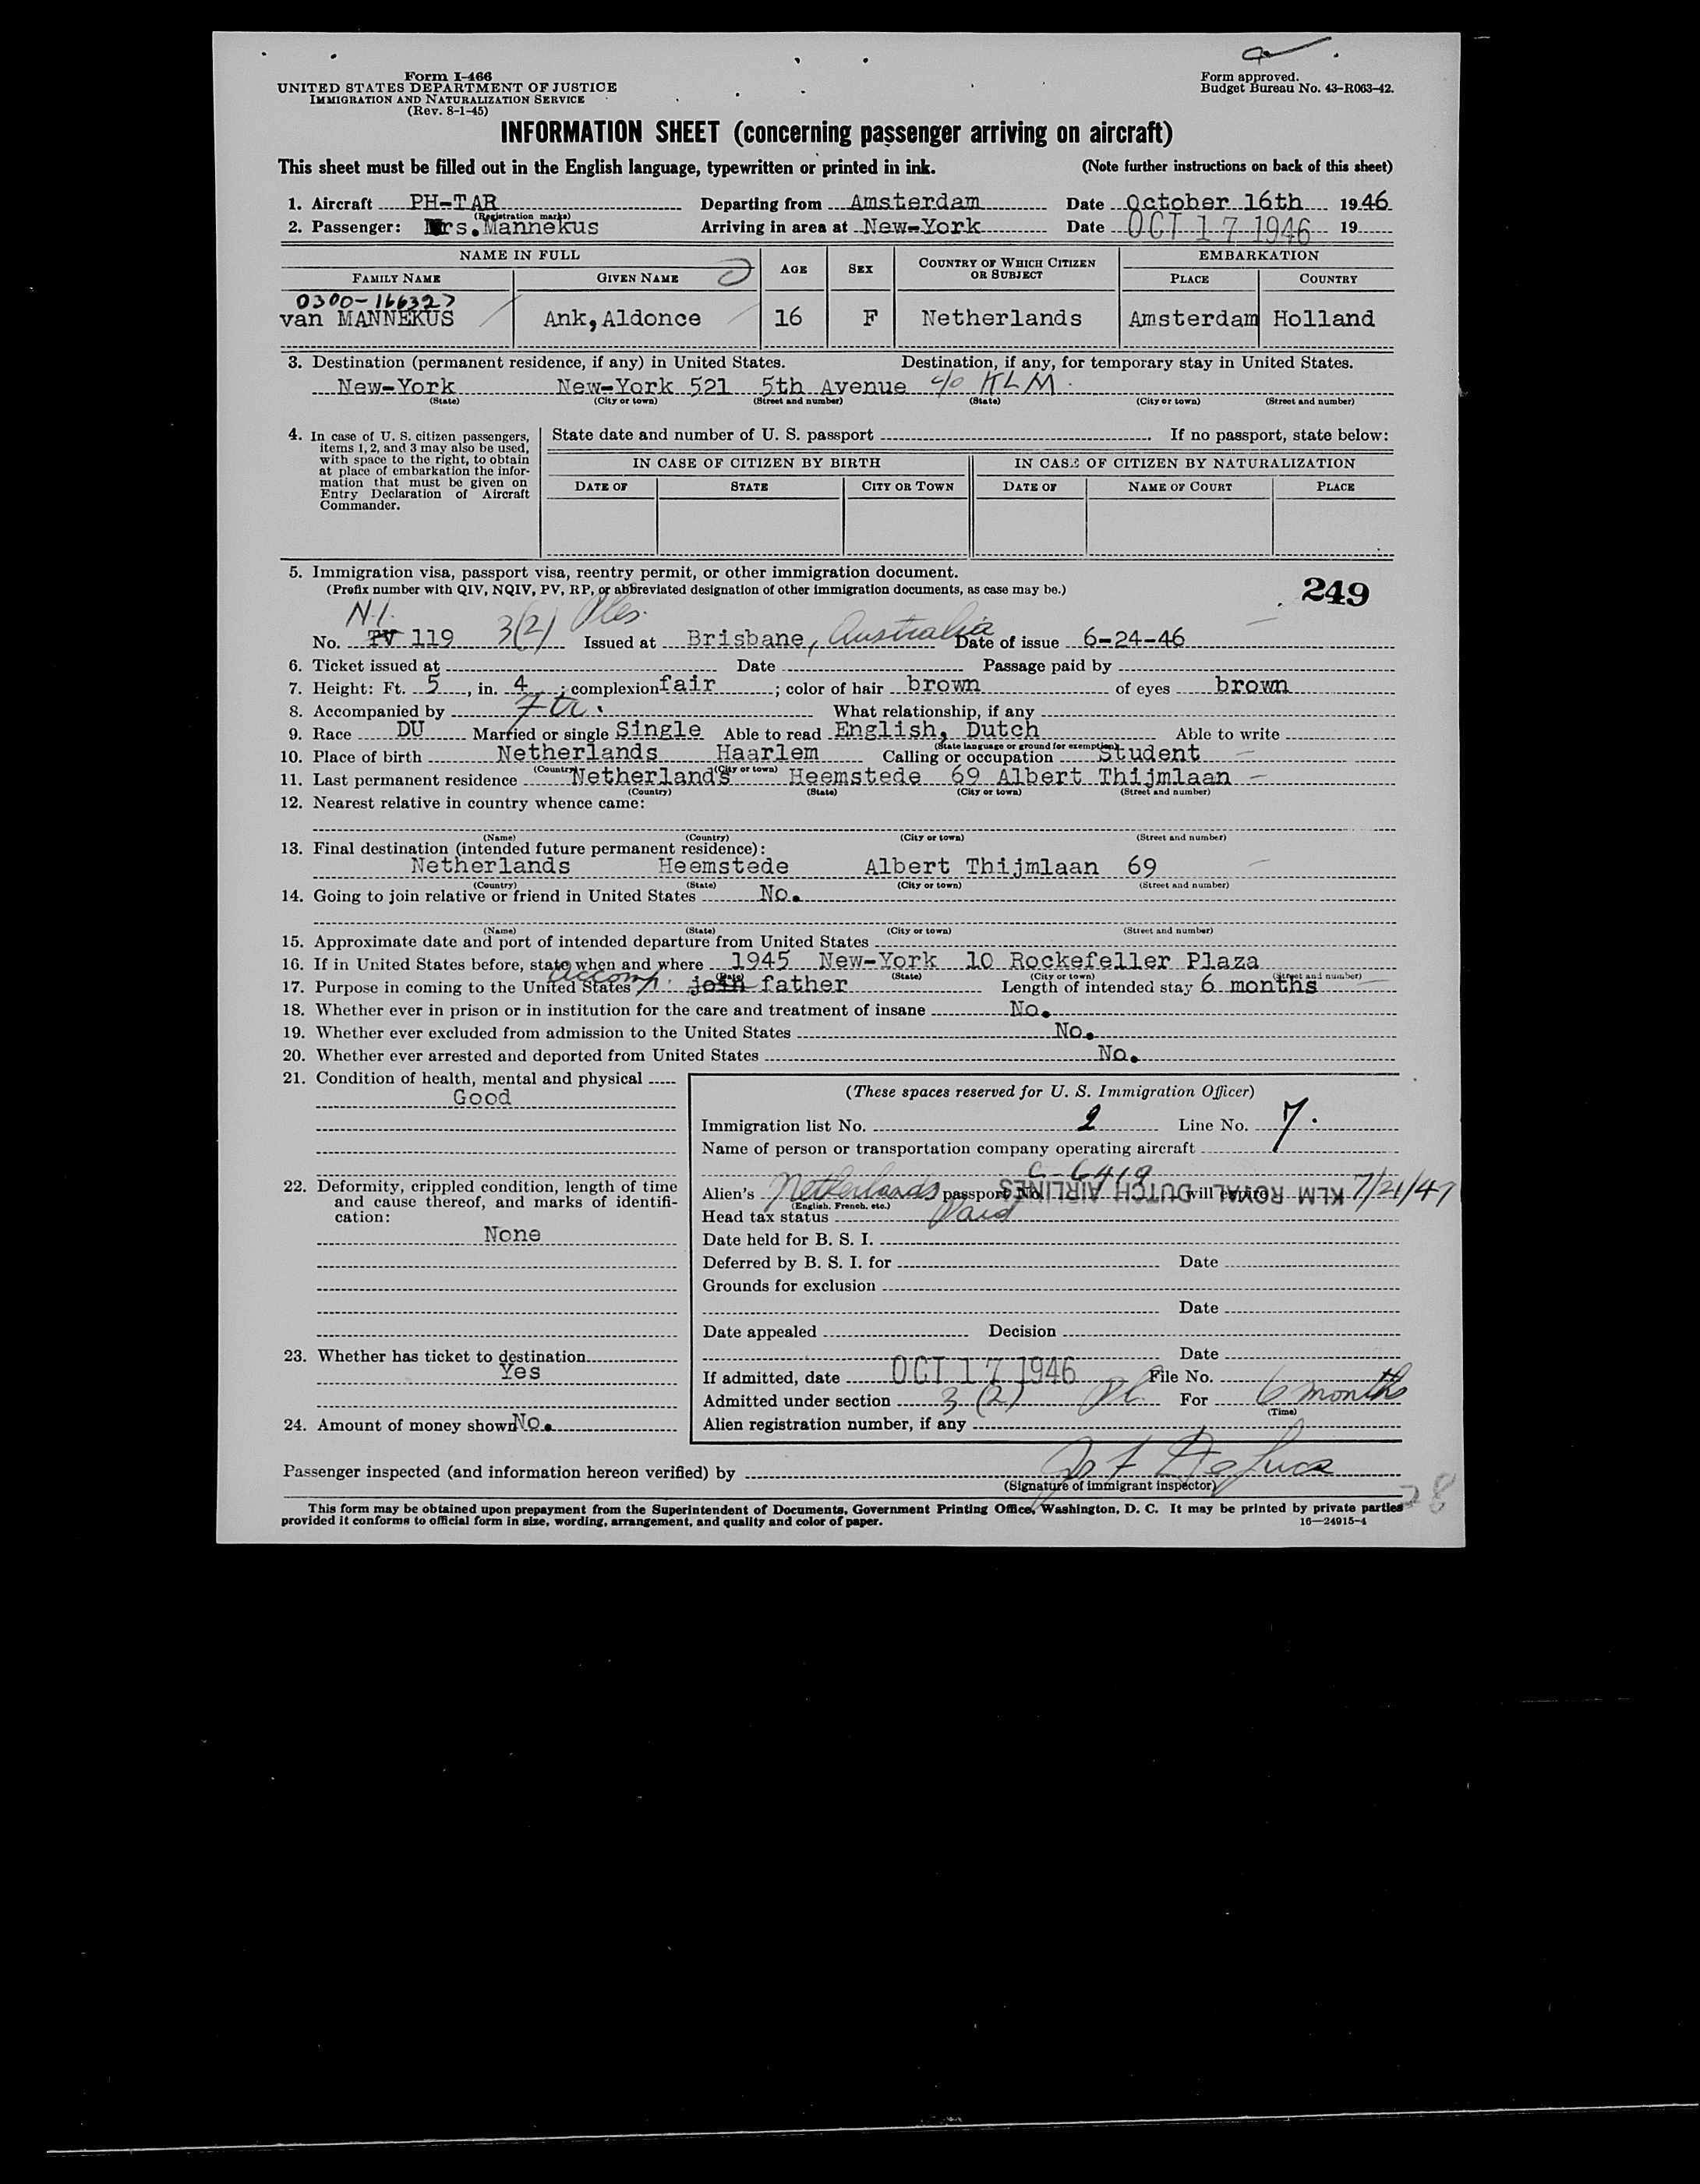 Form I-466
UNITED STATES DEPARTMENT OF JUSTICE
IMMIGRATION AND NATURALIZATION SERVICE
(Rev. 8-1-45)
Form approved.
Budget Bureau No. 43-R063-42.
INFORMATION SHEET (concerning passenger arriving on aircraft)
This sheet must be filled out in the English language, typewritten or printed in ink. (Note further instructions on back of this sheet)
1. Aircraft PH-TAR Departing from Amsterdam Date October 16th 1946
(Registration marks)
2. Passenger: Mrs. Mannekus Arriving in area at New-York Date OCT 17 1946 19
NAME IN FULL AGE SEX COUNTRY OF WHICH CITIZEN OR SUBJECT EMBARKATION
FAMILY NAME GIVEN NAME PLACE COUNTRY
0300-166327
van MANNEKUS Ank, Aldonce 16 F Netherlands Amsterdam Holland
3. Destination (permanent residence, if any) in United States. Destination, if any, for temporary stay in United States.
New-York New-York 521 5th Avenue c/o KLM
(State) (City or town) (Street and number) (State) (City or town) (Street and number)
4. In case of U. S. citizen passengers, items 1, 2, and 3 may also be used, with space to the right, to obtain at place of embarkation the information that must be given on Entry Declaration of Aircraft Commander.
State date and number of U. S. passport . If no passport, state below:
IN CASE OF CITIZEN BY BIRTH IN CASE OF CITIZEN BY NATURALIZATION
DATE OF STATE CITY OR TOWN DATE OF NAME OF COURT PLACE
5. Immigration visa, passport visa, reentry permit, or other immigration document.
(Prefix number with QIV, NQIV, PV, RP, or abbreviated designation of other immigration documents, as case may be.)
249
N.I.
No. TV 119 3(2) Issued at Brisbane, Australia Date of issue 6-24-46
6. Ticket issued at Date Passage paid by
7. Height: Ft. 5, in. 4; complexion fair; color of hair brown of eyes brown
8. Accompanied by Ftr. What relationship, if any
9. Race DU Married or single Single Able to read English, Dutch Able to write
(State language or ground for exemption)
10. Place of birth Netherlands Haarlem Calling or occupation Student
(Country) (City or town)
11. Last permanent residence Netherlands Heemstede 69 Albert Thijmlaan
(Country) (State) (City or town) (Street and number)
12. Nearest relative in country whence came:
(Name) (Country) (City or town) (Street and number)
13. Final destination (intended future permanent residence):
Netherlands Heemstede Albert Thijmlaan 69
(Country) (State) (City or town) (Street and number)
14. Going to join relative or friend in United States No.
(Name) (State) (City or town) (Street and number)
15. Approximate date and port of intended departure from United States
16. If in United States before, state when and where 1945 New-York 10 Rockefeller Plaza
(Date) (State) (City or town) (Street and number)
17. Purpose in coming to the United States accomp. join father Length of intended stay 6 months
18. Whether ever in prison or in institution for the care and treatment of insane No.
19. Whether ever excluded from admission to the United States No.
20. Whether ever arrested and deported from United States No.
21. Condition of health, mental and physical
Good
22. Deformity, crippled condition, length of time and cause thereof, and marks of identification:
None
23. Whether has ticket to destination
Yes
24. Amount of money shown No.
(These spaces reserved for U. S. Immigration Officer)
Immigration list No. 2 Line No. 7.
Name of person or transportation company operating aircraft
KLM ROYAL DUTCH AIRLINES
Alien's Netherlands passport No. C-6419 will expire 7/21/47
(English, French, etc.)
Head tax status Paid
Date held for B. S. I.
Deferred by B. S. I. for Date
Grounds for exclusion
Date
Date appealed Decision
Date
If admitted, date OCT 17 1946 File No.
Admitted under section 3 (2) Pl. For 6 months
(Time)
Alien registration number, if any
Passenger inspected (and information hereon verified) by
(Signature of immigrant inspector)
28
This form may be obtained upon prepayment from the Superintendent of Documents, Government Printing Office, Washington, D. C. It may be printed by private parties
provided it conforms to official form in size, wording, arrangement, and quality and color of paper.
16—24915-4